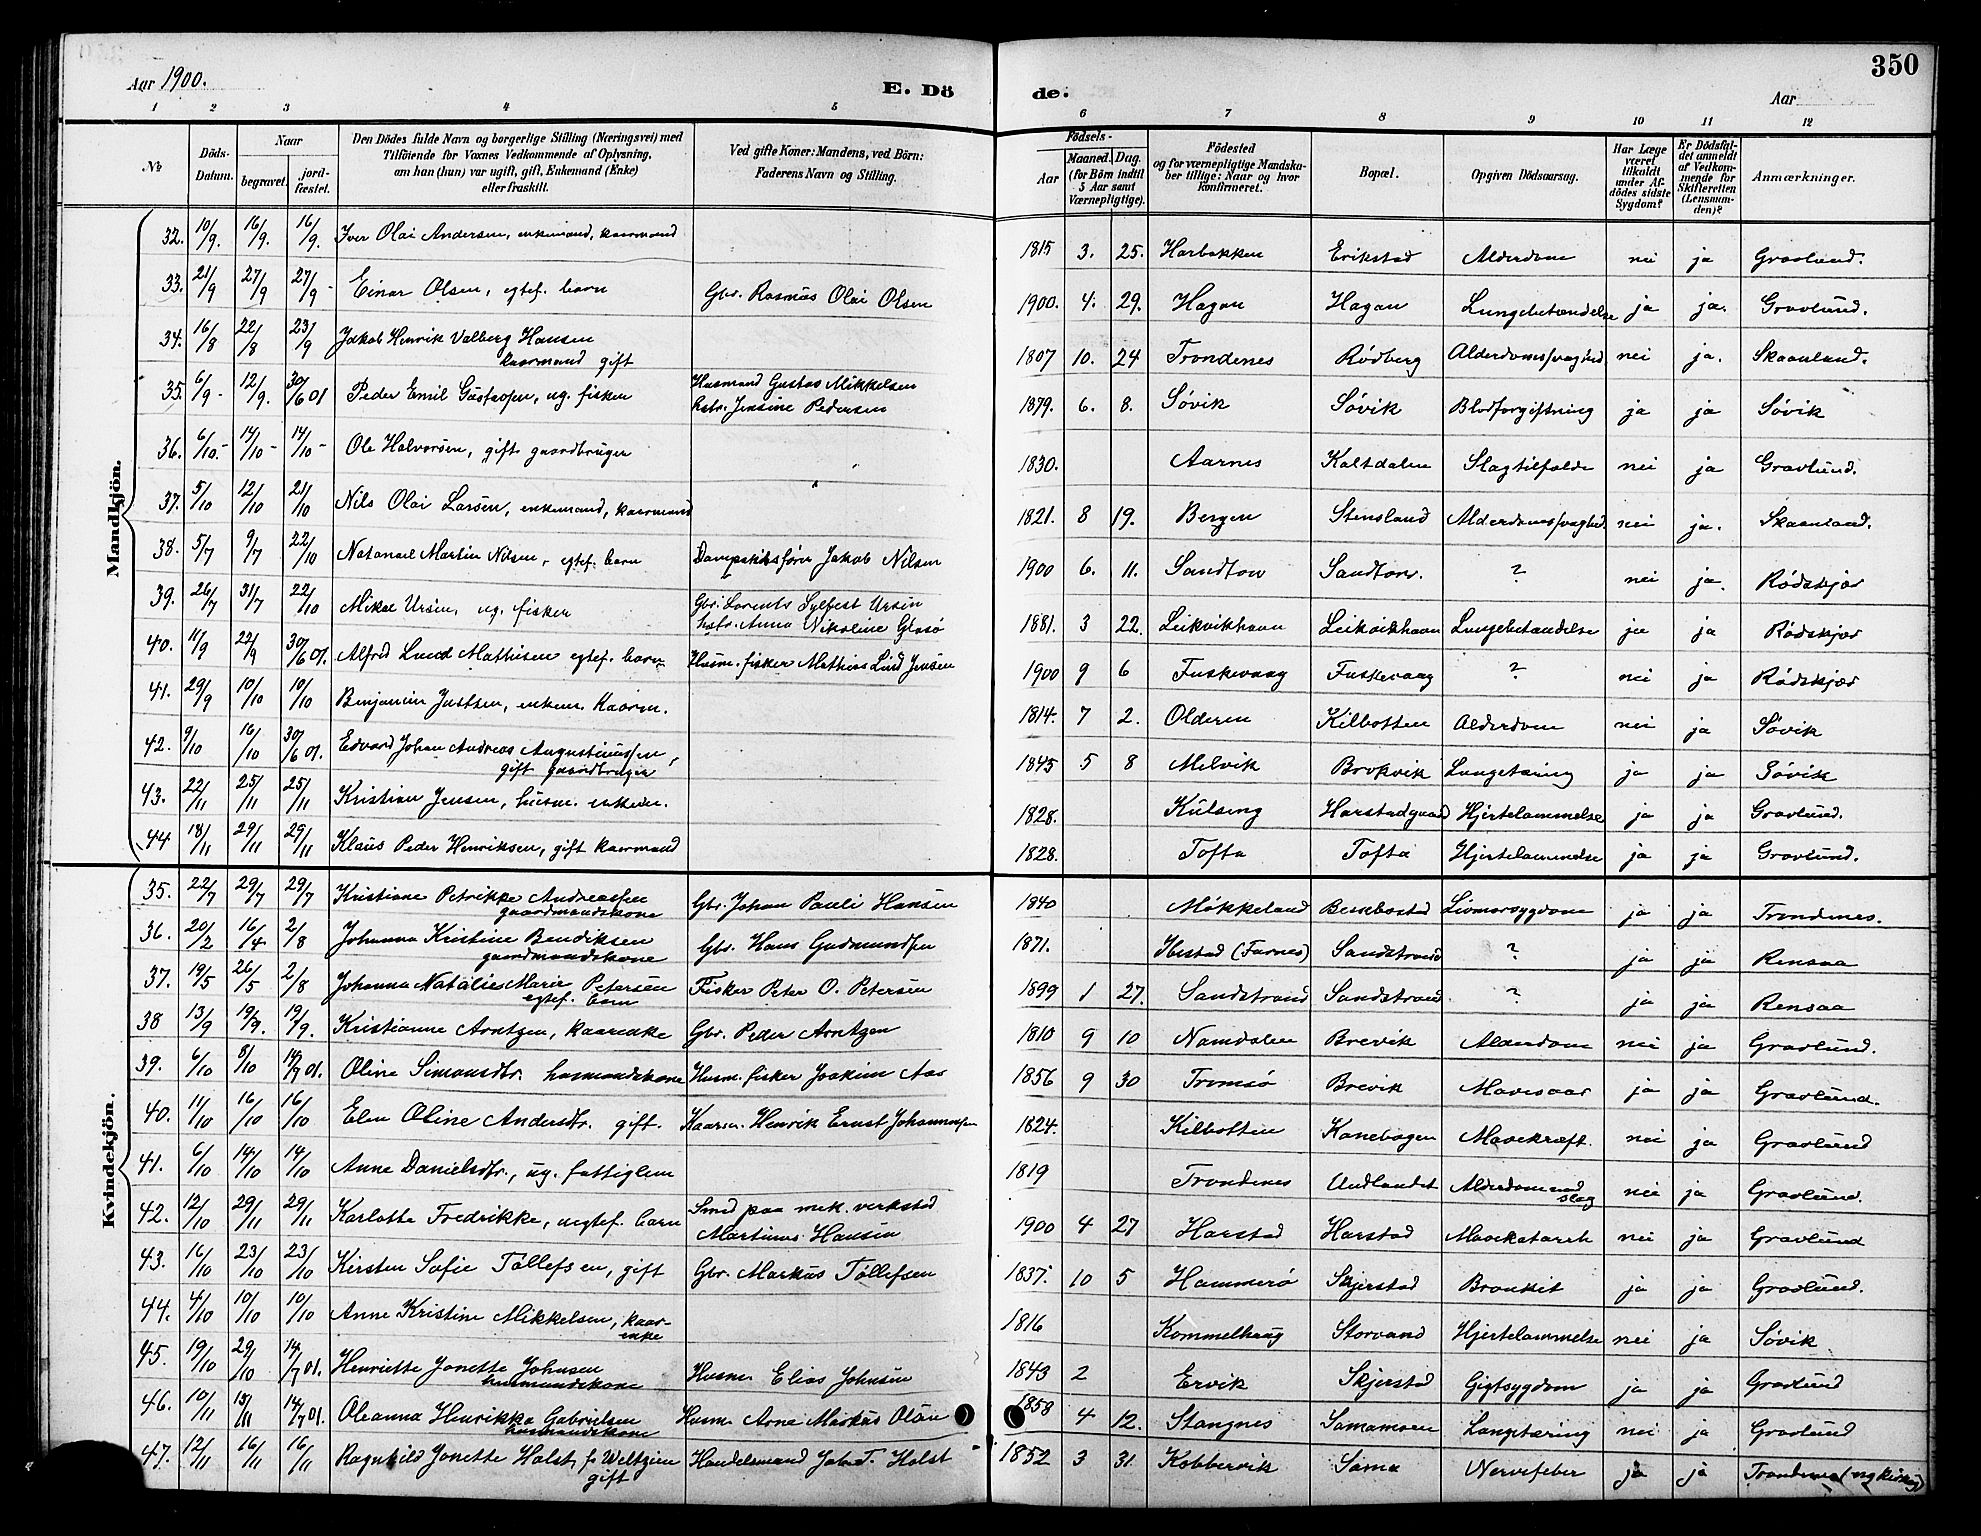 350
Aar 1900.
E. Döde.
Aar
1 2 3 4 5 6 7 8 9 10 11 12
No
Döds-Datum.
Naar
begravet.
jordfæstet.
Den Dödes fulde Navn og borgerlige Stilling (Næringsvei) med
Tilföiende for Voxnes Vedkommende af Oplysning,
om han (hun) var ugift, gift, Enkemand (Enke)
eller fraskilt.
Ved gifte Koner: Mandens, ved Börn:
Faderens Navn og Stilling.
Fødsels-
Aar
Maaned. Dag.
(for Börn indtil
5 Aar samt
Værnepligtige).
Födested
og for værnepligtige Mandskaber tillige: Naar og hvor
konfirmeret.
Bopæl.
Opgiven Dödsaarsag.
Har Læge
været
tilkaldt
under Afdödes sidste
Sygdom?
Er Dödsfaldet anmeldt
af Vedkommende for
Skifteretten
(Lensmanden)?
Anmærkninger.
Mandkjön.
32. 10/9. 16/9. 16/9. Iver Olai Andersen, enkemand, kaarmand 1815 3. 25. Harbakken Erikstad Alderdom nei ja Gravlund.
33. 21/9 27/9 27/9 - Einar Olsen, egtef. barn Gbr. Rasmus Olai Olsen 1900. 4. 29. Hagan Hagan Lungebetændelse ja ja. Gravlund.
34. 16/8 22/8 23/9 Jakob Henrik Valberg Hansen
kaarmand gift 1807 10. 24 Trondenes Rødberg Alderdomssvaghed nei ja. Skaanland.
35. 6/9 - 12/9. 30/6 01 Peder Emil Gustavsen, ug. fisker Husmand Gustav Mikkelsen
hstr. Jensine Pedersen 1879. 6. 8. Søvik Søvik Blodforgiftning ja ja Søvik
36. 6/10. - 14/10 - 14/10 - Ole Halvorsen, gift gaardbruger 1830. Aarnes Kaltdalen Slagtilfælde nei ja Gravlund.
37. 5/10 12/10 21/10 Nils Olai Larsen, enkemand, kaarmand 1821. 8 19. Bergen Stensland Alderdomssvaghed nei ja. Skaanland.
38. 5/7 9/7 22/10 Natanael Martin Nilsen, egtef. barn Dampskibsfører Jakob Nilsen 1900 6. 11. Sandtorv Sandtorv. ? nei ja. Rødskjær
39. 26/7 31/7 22/10 Mikal Ursin, ug. fisker Gbr. Lorents Sylfest Ursin
hstr. Anna Nikoline 1881. 3 22. Leikvikhavn Leikvikhavn Lungebetændelse ja ja Rødskjær
40. 11/9 22/9 30/6 01. Alfred Lund Mathisen egtef. barn Husm. fisker Mathias Lind Jensen 1900 9 6 Fuskevaag Fuskevaag ? nei ja Rødskjær
41. 29/9 10/10 10/10 Benjamin Justsen, enkem. Kaarm. 1814. 7 2. Olderen Kilbotten Alderdom nei ja Søvik
42. 9/10 16/10 30/6 01. Edvard Johan Andreas Augustinussen,
gift gaardbruger 1845 5 8 Melvik Brokvik Lungetæring ja ja Søvik
43. 22/11 25/11 25/11 Kristian Jensen, husm. enkem. 1828. Kulseng Harstadgaard Hjertelammelse ja ja Gravlund.
44 18/11 29/11 29/11 Klaus Peder Henriksen, gift kaarmand 1828. Tofta Tofta Hjertelammelse ja ja Gravlund.
Kvindekjön.
35. 22/7 29/7 29/7 Kristiane Petrikke Andreassen
gaardmandskone Gbr. Johan Pauli Hansen 1840 Møkkeland Bessebostad Livmorsygdom ja ja Trondenes.
36. 20/2 16/4 2/8 Johanna Kristine Bendiksen
gaardmandskone Gbr. Hans Gudmundsen 1871. Ibestad (Farnes) Sandstrand ? ja ja Rensaa
37. 19/5 26/5 2/8 Johanna Natalie Marie Petersen
egtef. barn Fisker Peter O. Petersen 1899 1 27. Sandstrand Sandstrand ? ja ja Rensaa
38 13/9 19/9. 19/9. Kristianne Arntzen, kaarenke Gbr. Peder Arntzen 1810 9 10 Namdalen Brevik Alderdom nei ja Gravlund.
39. 6/10 8/10 14/7 01. Oline Simonsdtr. husmandskone Husm. fisker Joakim Aas 1856 9 30 Tromsø Brevik Mavesaar ja ja Gravlund.
40. 11/10 16/10 16/10 Elen Oline Andersdtr. gift. Kaarm. Henrik Ernst Johannessen 1824. Kilbotten Kanebogen Mavekræft. nei ja Gravlund
41. 6/10 14/10 14/10 Anne Danielsdtr., ug. fattiglem 1819 Trondenes Undlandet Alderdom
slag nei ja Gravlund.
42. 12/10 29/11 29/11 Karlotte Fredrikke, uegtef. barn Smed paa mek. verksted
Martinus Hansen 1900 4 27 Harstad Harstad Mavekatarrh nei ja Gravlund
43. 16/10 23/10 23/10 Kirsten Sofie Tollefsen, gift Gbr. Markus Tollefsen 1837. 10 5 Hammerø Skjerstad Bronkit ja ja Gravlund.
44. 4/10 10/10 10/10 Anne Kristine Mikkelsen, kaarenke 1816 Kommelhaug Storvand Hjertelammelse nei ja Søvik
45. 19/10 29/10 14/7 01. Henriette Jonette Johnsen
husmandskone Husm. Elias Johnsen 1843 2 Ervik Skjerstad Gigtsygdom ja ja Gravlund
46. 10/11 13/11 14/7 01. Oleanna Henrikka Gabrielsen
husmandskone Husm. Arne Markus Olsen 1858 4 12. Stangnes Samamoen Lungetæring nei ja Gravlund
47. 12/11 16/11 16/11 Ragnhild Jonette Holst, f. Weltzien
gift Handelsmand Joh. F. Holst 1852 3 31. Kobbervik Sama Nervefeber ja ja Trondenes (ug kirkeg)